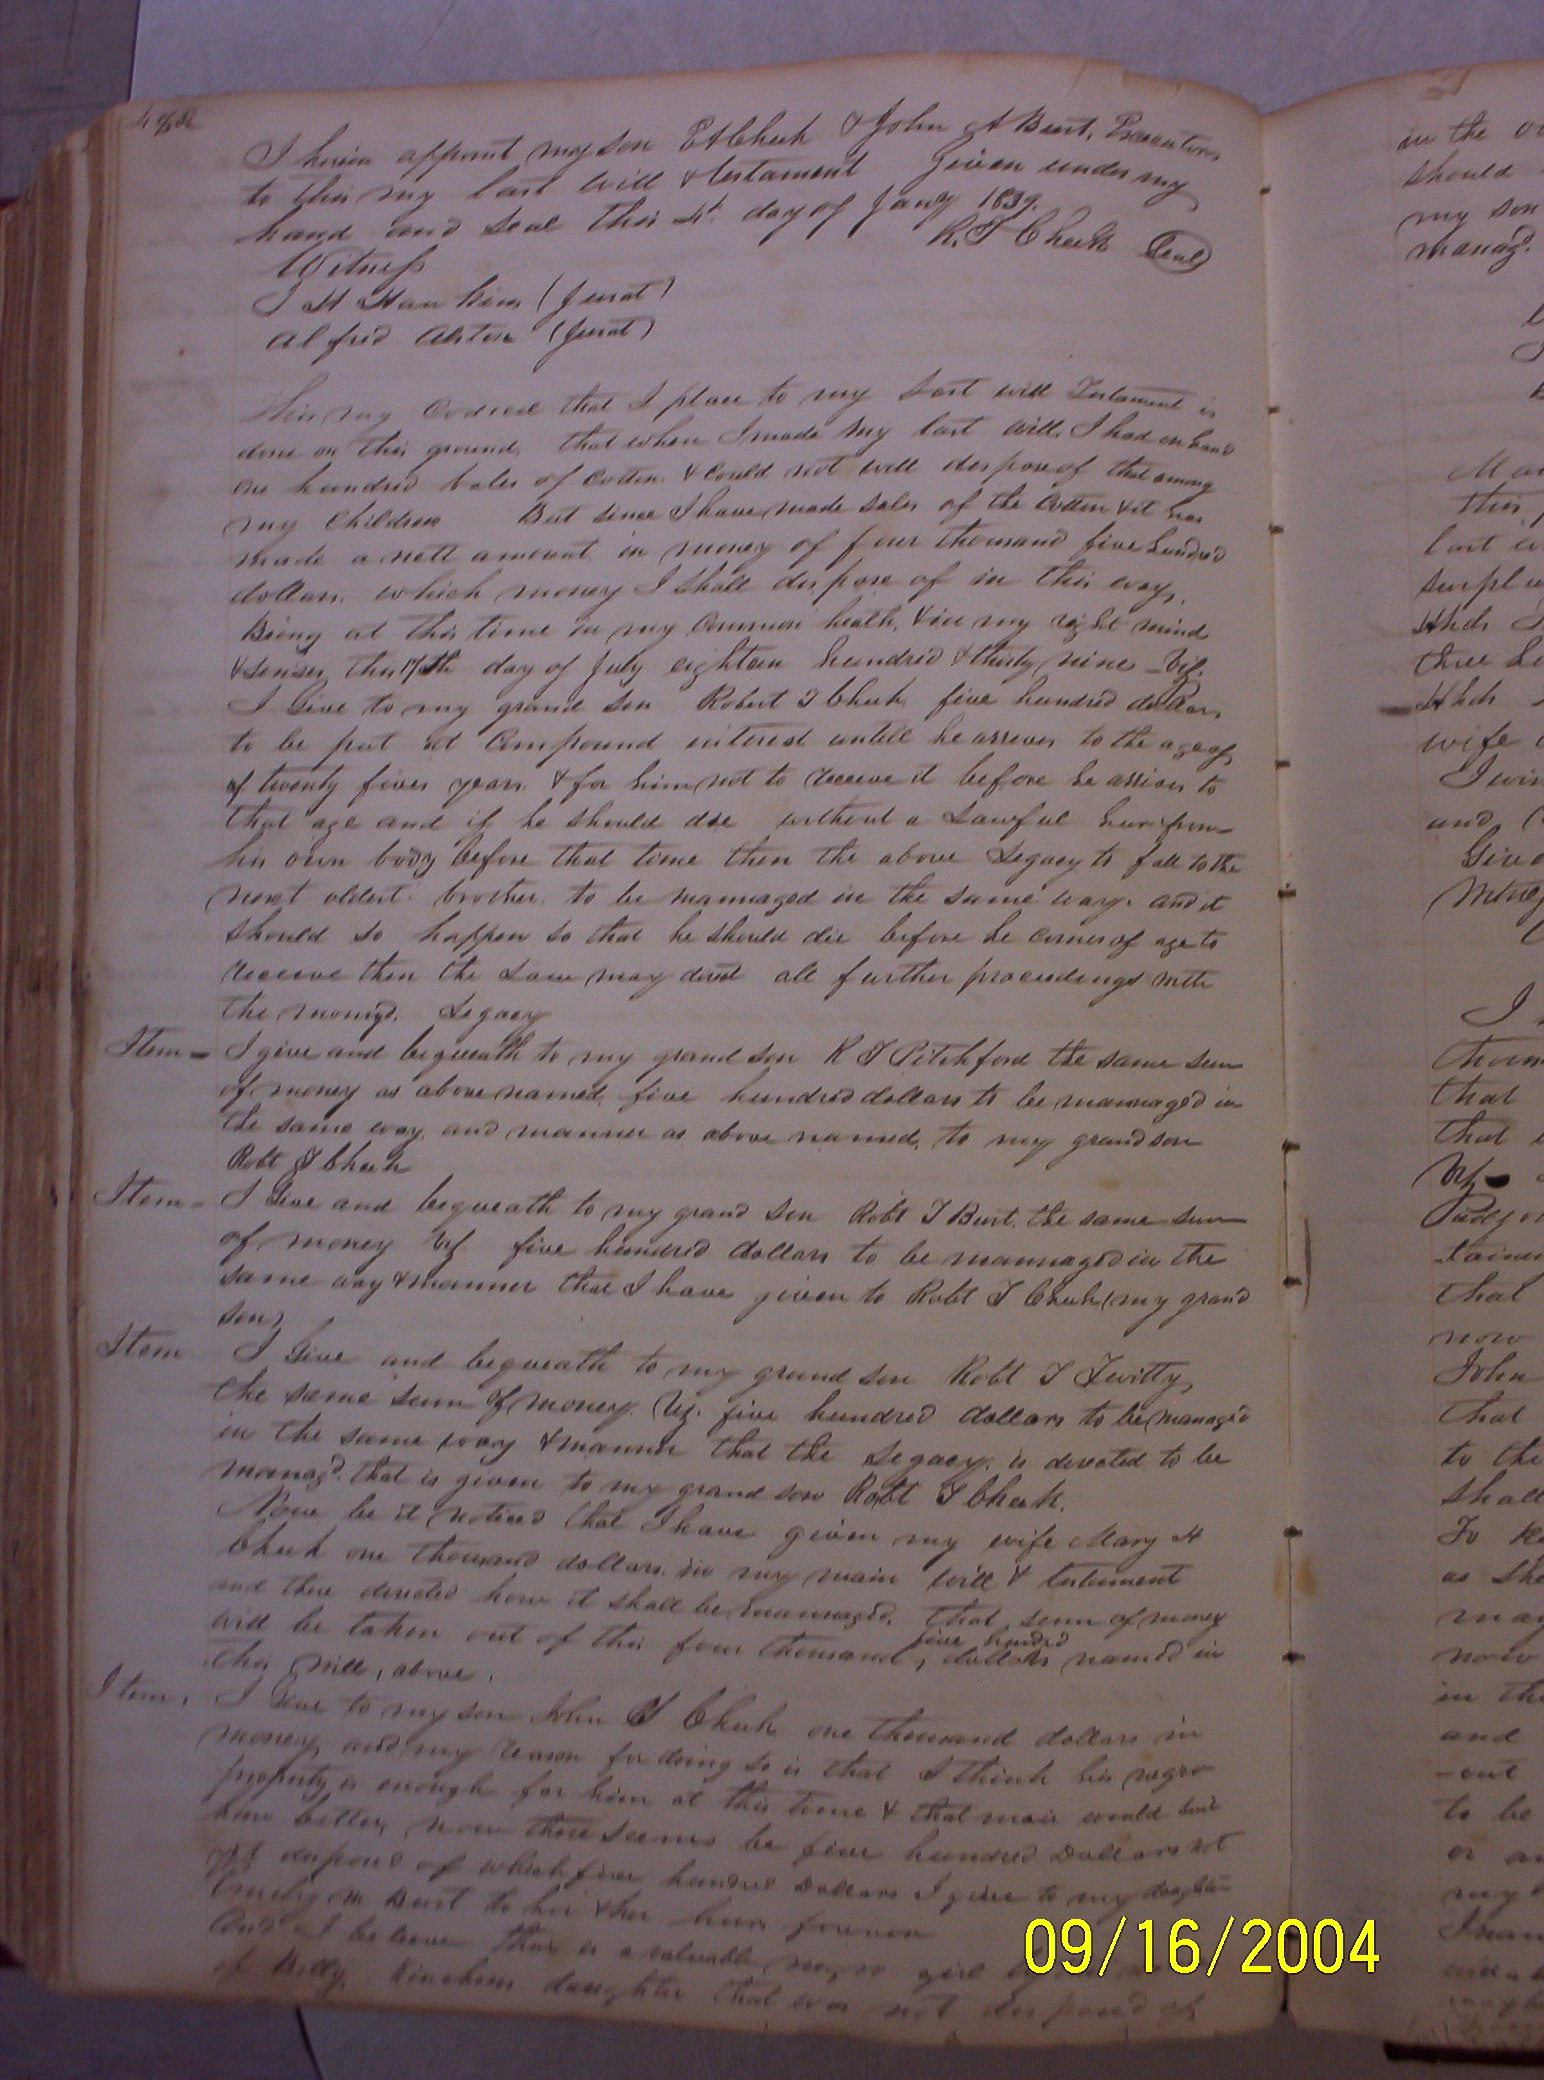 I herein appoint my son E A Cheek & John A Burt, Executors
to this my last will & testament Given under my
hand and seal this 4t day of Jany 1839.
R. T Cheek Seal
Witness
J H Hawkins (Jurat)
Alfred Alston (Jurat)
This my Codicil that I place to my last will Testament is
done on this ground, that when I made my last will, I had on hand
one hundred bales of Cotton & could not well dispose of that among
my Children But since I have made sales of the Cotton & it has
made a nett amount in money of four thousand five hundred
dollars. which money I shall dispose of in this way,
Being at this time in my Common health, & in my right mind
& senses, this 17th day of July eighteen hundred & thirty nine - Viz.
I Give to my grand son Robert T Cheek five hundred dollars,
to be put at Compound interest untill he arrives to the age of
of twenty fives years & for him not to receive it before he arrives to
that age and if he should die without a Lawful heir from
his own body before that time then the above Legacy to fall to the
next oldest brother, to be mannaged in the same way. and it
should so happen so that he should die before he comes of age to
receive then the Law may direct all further proceedings with
the monyd. Legacy
Item - I give and bequeath to my grand son R T Pitchford the same sum
of money as above named, five hundred dollars to be mannaged in
the same way and manner as above named, to my grand son
Robt T Cheek
Item - I Give and bequeath to my grand son Robt T Burt the same sum
of money Viz five hundred dollars to be mannaged in the
same way & manner that I have given to Robt T Cheek (my grand
son)
Item I Give and bequeath to my grand son Robt T Twitty
the same sum of money. Viz. five hundred dollars to be managed
in the same way & manner that the Legacy is devoted to be
managd. that is given to my grand son Robt T Cheek.
Now be it noticed that I have given my wife Mary H
Cheek one thousand dollars in my main will & testument
and there devoted how it shall be mannaged, that sum of money
will be taken out of this four thousand, five hundred dollars named in
this will, above,
Item, I Give to my son John T Cheek one thousand dollars in
money, and my reason for doing so is that I think his negro
property is enough for him at this time & that would suit
him better, now there seems be five hundred Dollars not
yet disposed of which five hundred Dollars I give to my daughter
Burt to her & her heirs forever
And I believe there is a valuable negro girl
of Betty daughter that was not disposed of
in the
should
my son
managd.
last
surplus
Hhds
three
Hhds
wife
and
that
that
that
now
John
that
to the
shall
as she
may
now
in the
and
-out
to be
09/16/2004